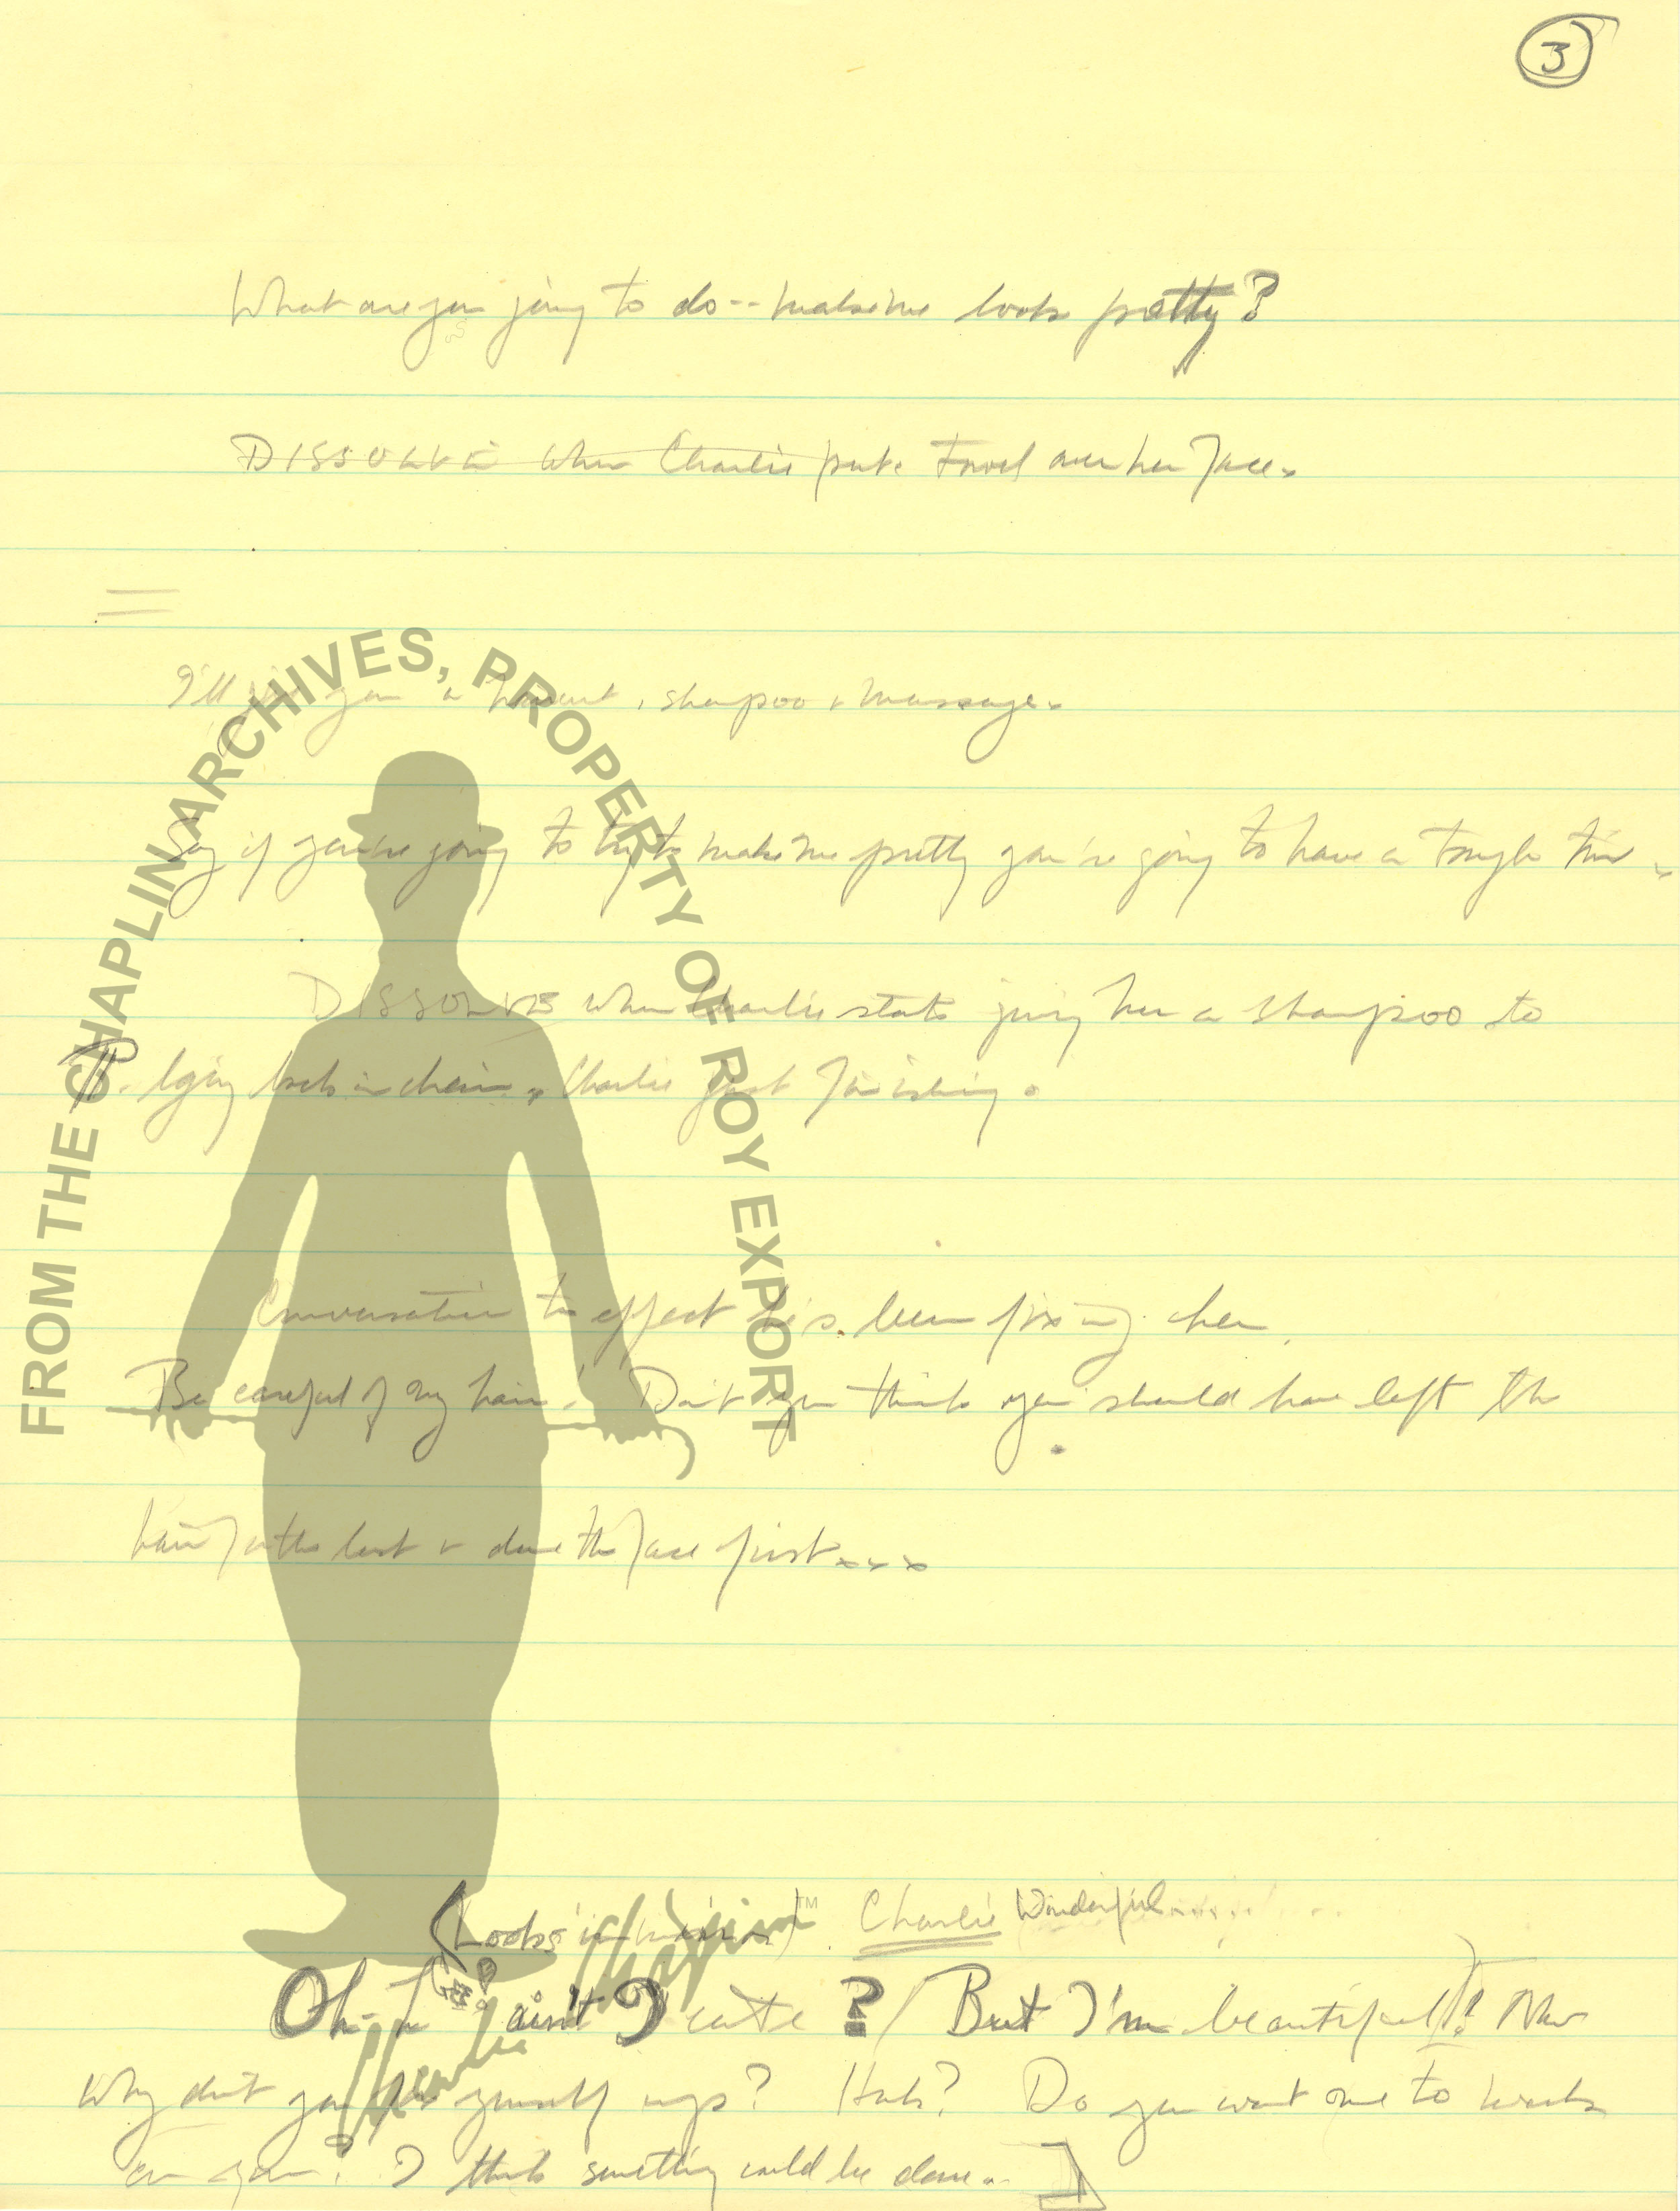 3
What are you going to do -- make me look pretty?
DISSOLVE when Charlie puts towel over her face.
I'll give you a haircut, shampoo & massage.
Say if you're going to try to make me pretty you're going to have a tough time.
DISSOLVE when Charlie starts giving her a shampoo to
lying back in chair. Charlie just finishing.
Conversation to effect he's been fixing her.
Be careful of my hair! Don't you think you should have left the
hair for the last & done the face first...
(Looks in mirror) Charlie Wonderful.....
Oh- ain't I cute? (But I'm beautiful)! Now
Why don't you fix yourself up? Huh? Do you want me to work
on you? I think something could be done.
FROM THE CHAPLIN ARCHIVES, PROPERTY OF ROY EXPORT
Charlie Chaplin™